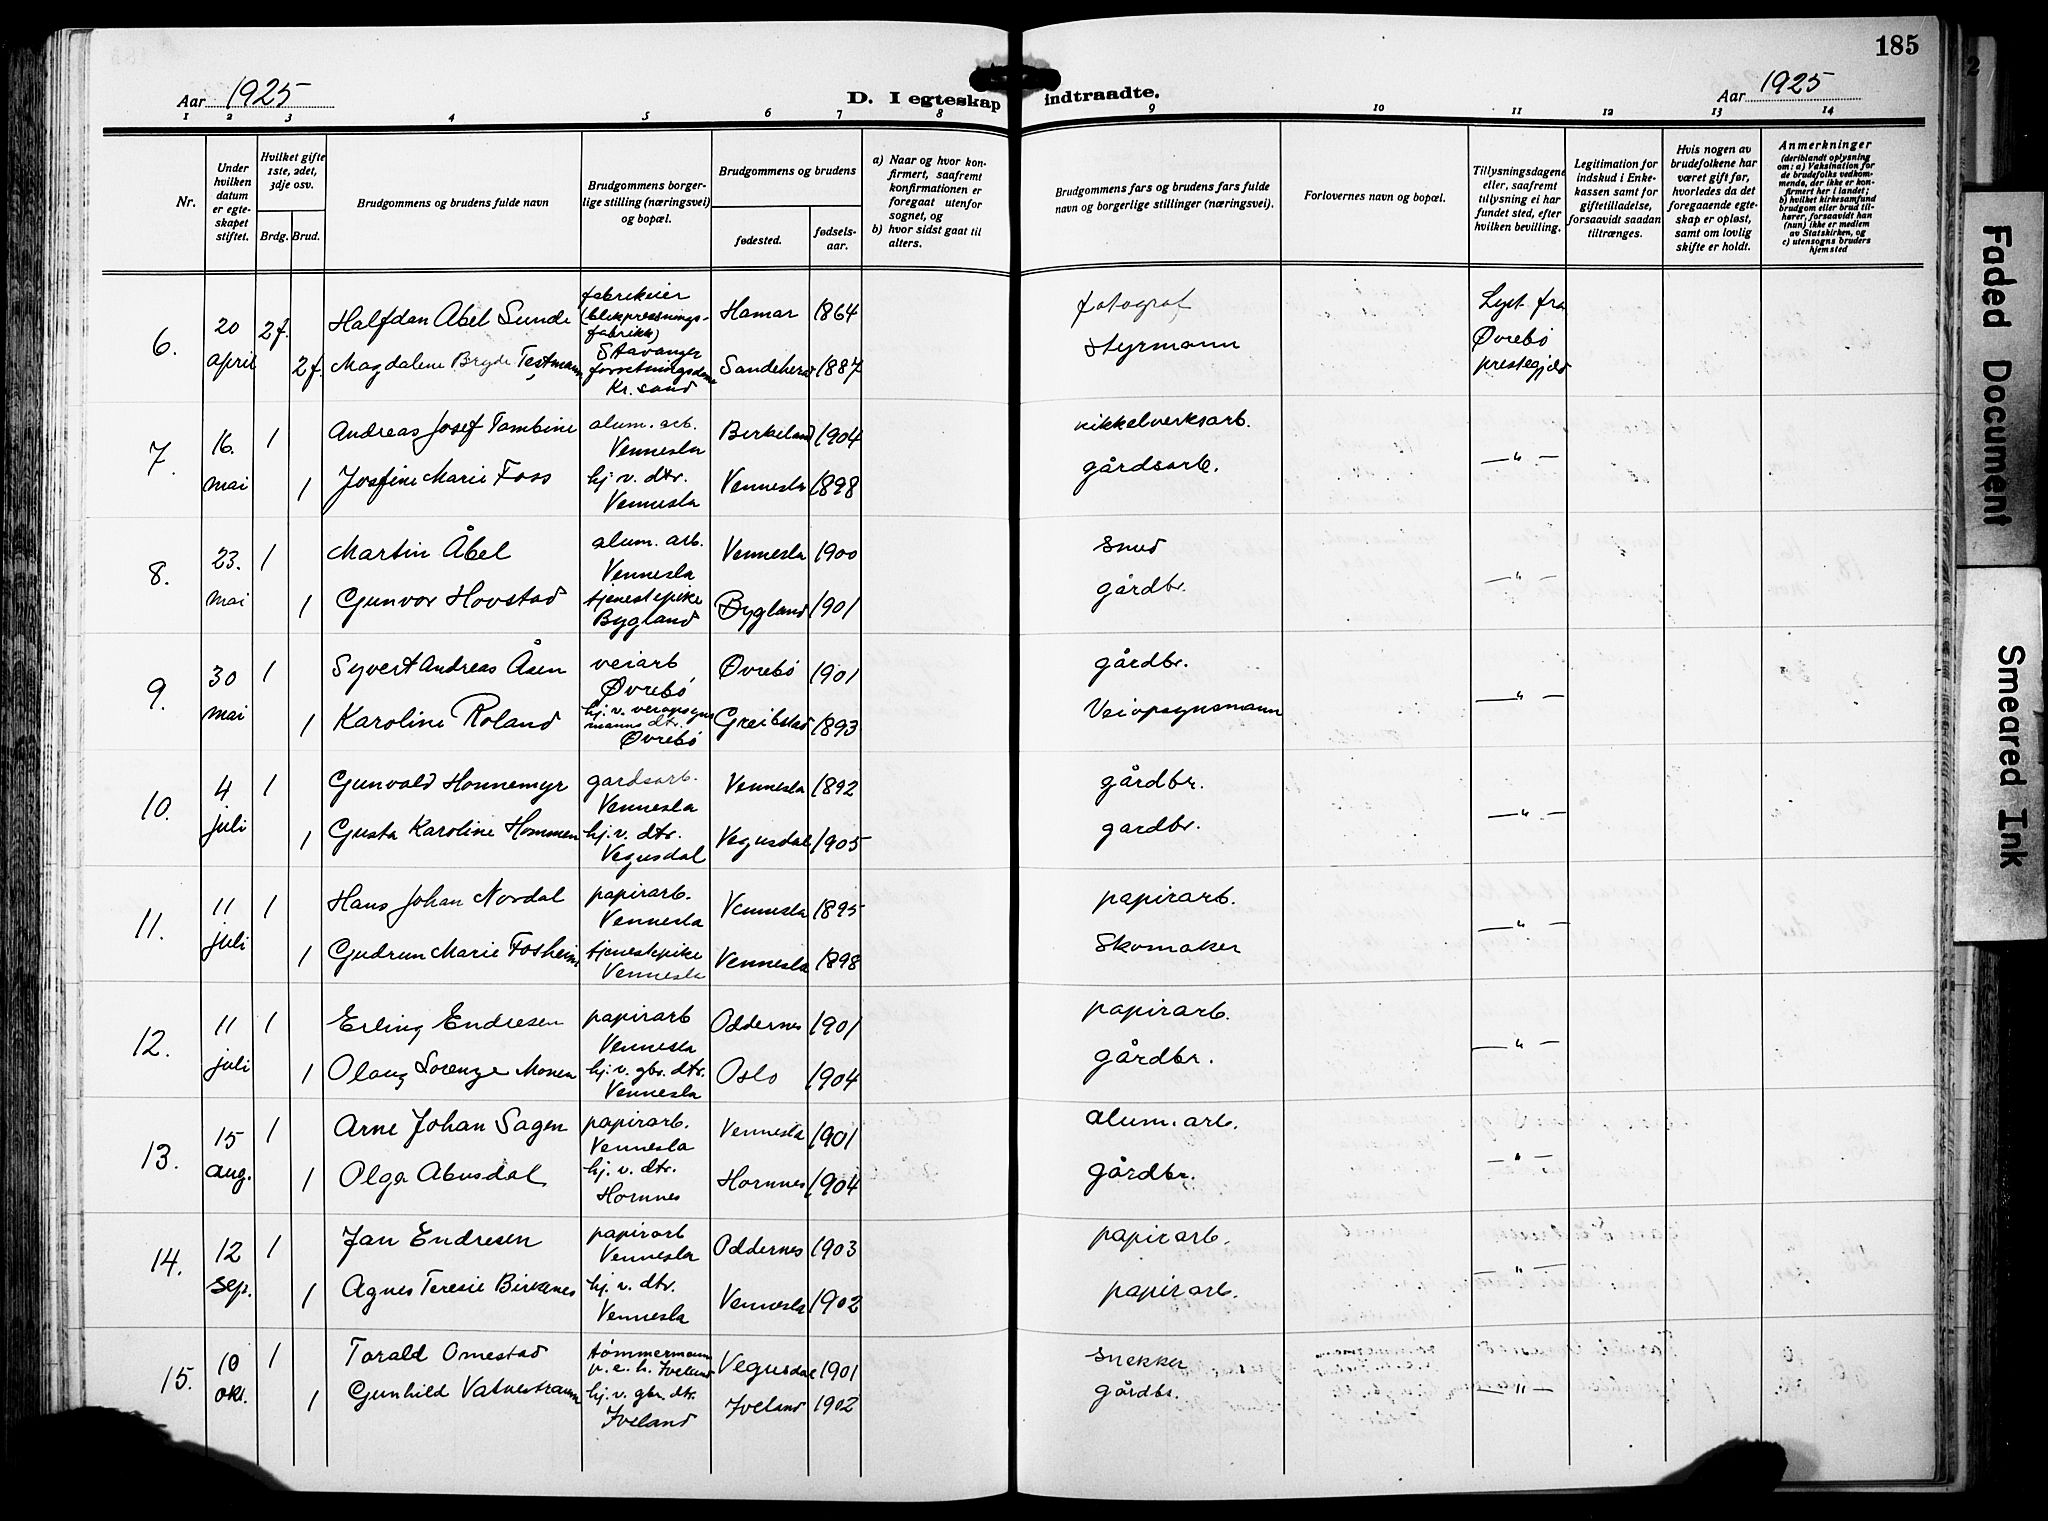 185
Aar 1925
D. I egteskap indtraadte.
Aar 1925
1 2 3 4 5 6 7 8 9 10 11 12 13 14
Nr.
Under hvilken datum er egteskapet stiftet.
Hvilket gifte 1ste, 2det, 3dje osv.
Brdg. Brud.
Brudgommens og brudens fulde navn
Brudgommens borgerlige stilling (næringsvei) og bopæl.
Brudgommens og brudens
fødested.
fødselsaar.
a) Naar og hvor konfirmert, saafremt konfirmationen er foregaat utenfor sognet, og
b) hvor sidst gaat til alters.
Brudgommens fars og brudens fars fulde navn og borgerlige stillinger (næringsvei).
Forlovernes navn og bopæl.
Tillysningsdagene eller, saafremt tillysning ei har fundet sted, efter hvilken bevilling.
Legitimation for indskud i Enkekassen samt for giftetilladelse, forsaavidt saadan tiltrænges.
Hvis nogen av brudefolkene har været gift før, hvorledes da det foregaaende egteskap er opløst, samt om lovlig skifte er holdt.
Anmerkninger
(deriblandt oplysning om: a) Vaksination for de brudefolks vedkommende, der ikke er konfirmert her i landet; b) hvilket kirkesamfund brudgom eller brud tilhører, forsaavidt han (hun) ikke er medlem av Statskirken, og c) utensogns bruders hjemsted
6. 20 april 2 f. Halfdan Abel Sunde fabrikeier (blikpresningsfabrikk) Stavanger Hamar 1864 fotograf Lyst fra Øvrebø prestegjeld
2 f. Magdalene Bryde Testmann forretningsdame Kr. sand Sandeherad 1887 styrmann
7. 16. mai 1 Andreas Josef Tambini alum. arb. Vennesla Birkeland 1904 nikkelverksarb. — " —
1 Josfine Marie Foss hj. v. dtr. Vennesla Vennesla 1898 gårdsarb.
8. 23. mai 1 Martin Åbel alum. arb. Vennesla Vennesla 1900 smed — " —
1 Gunvor Hovstad tjenestepike Bygland Bygland 1901 gårdbr.
9. 30 mai 1 Syvert Andreas Åsen veiarb Øvrebö Øvrebö 1901 gårdbr. — " —
1 Karoline Roland hj. v. veiopsynsmanns dtr. Øvrebö Greibstad 1893 Veiopsynsmann
10. 4 juli 1 Gunvald Honnemyr gardsarb. Vennesla Vennesla 1892 gårdbr. — " —
1 Gusta Karoline Hommen hj. v. dtr. Vegusdal Vegusdal 1905 gardbr.
11. 11 juli 1 Hans Johan Nordal papirarb. Vennesla Vennesla 1895 papirarb. — " —
1 Gudrun Marie Fosheim tjenestepike Vennesla Vennesla 1898 Skomaker
12. 11 juli 1 Erling Endresen papirarb Vennesla Oddernes 1901 papirarb. — " —
1 Olaug Lorenze Monen hj. v. gbr. dtr. Vennesla Oslo 1904 gårdbr.
13. 15 aug. 1 Arne Johan Sagen papirarb. Vennesla Vennesla 1901 alum. arb. — " —
1 Olga Abusdal hj. v. dtr. Hornnes Hornnes 1904 gårdbr.
14. 12 sep. 1 Jan Endresen papirarb Vennesla Oddernes 1903 papirarb. — " —
1 Agnes Teresie Birkenes hj. v. dtr. Vennesla Vennesla 1902 papirarb.
15. 10 okt. 1 Torald Omestad tömmermann v. e. h. Iveland Vegusdal 1901 snekker — " —
1 Gunhild Vatnestraum hj. v. gbr. dtr. Iveland Iveland 1902 gårdbr.
Faded Document
Smeared Ink
2